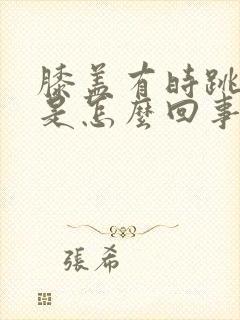 膝盖有時跳
是怎麼回事
張希